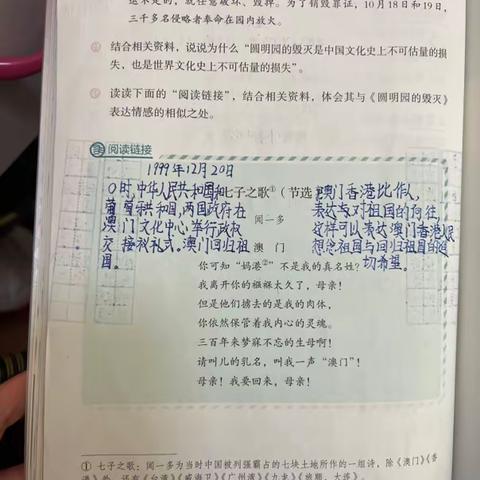 毁掉。为了销毁罪证，10月18日和19日，
三千多名侵略者奉命在园内放火。
结合相关资料，说说为什么“圆明园的毁灭是中国文化史上不可估量的损
失，也是世界文化史上不可估量的损失”。
读读下面的“阅读链接”，结合相关资料，体会其与《圆明园的毁灭》
表达情感的相似之处。
阅读链接
1999年12月20日
0时中华人民共和国和
葡萄牙共和国，两国政府在
澳门文化中心举行政权
交接仪式。澳门回归祖
国。
七子之歌①（节选
闻一多
澳门
澳门香港比作人，
表达对祖国的向往，
这样可以表达澳门香港人民
想念祖国与回归祖国的迫
切希望。
你可知“妈港②”不是我的真名姓？
我离开你的襁褓太久了，母亲！
但是他们掳去的是我的肉体，
你依然保管着我内心的灵魂。
三百年来梦寐不忘的生母啊！
请叫儿的乳名，叫我一声“澳门”！
母亲！我要回来，母亲！
① 七子之歌：闻一多为当时中国被列强霸占的七块土地所作的一组诗，除《澳门》《香